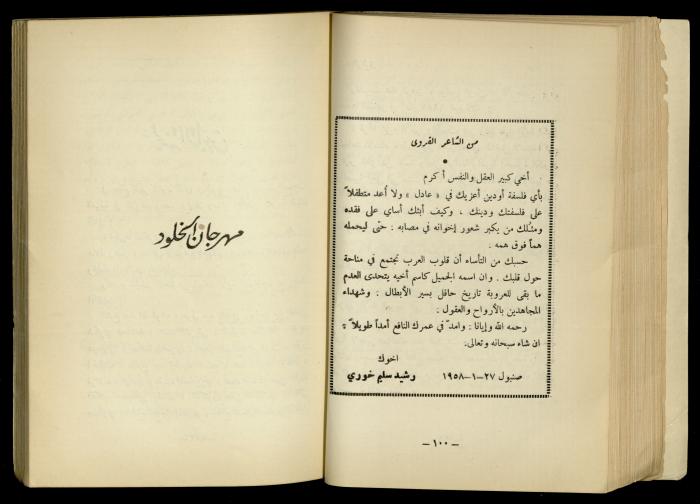 من الشاعر القروى
أخي كبير العقل والنفس أكرم
بأي فلسفة أودين أعزيك في « عادل » ولا أعد متطفلاً
على فلسفتك ودينك ، وكيف أبثك أساي على فقده
ومثلك من يكبر شعور إخوانه في مصابه : حتى ليحمله
هماً فوق همه .
حسبك من التأساء أن قلوب العرب تجتمع في مناحة
حول قلبك . وان اسمه الجميل كاسم أخيه يتحدى العدم
ما بقى للعروبة تاريخ حافل بسير الأبطال : وشهداء
المجاهدين بالأرواح والعقول .
رحمه الله وإيانا : وامدّ في عمرك النافع أمداً طويلاً ؛
ان شاء سبحانه وتعالى.
اخوك
صنبول ٢٧-١-١٩٥٨ رشيد سليم خوري
- ١٠٠ -
مهرجان الخلود